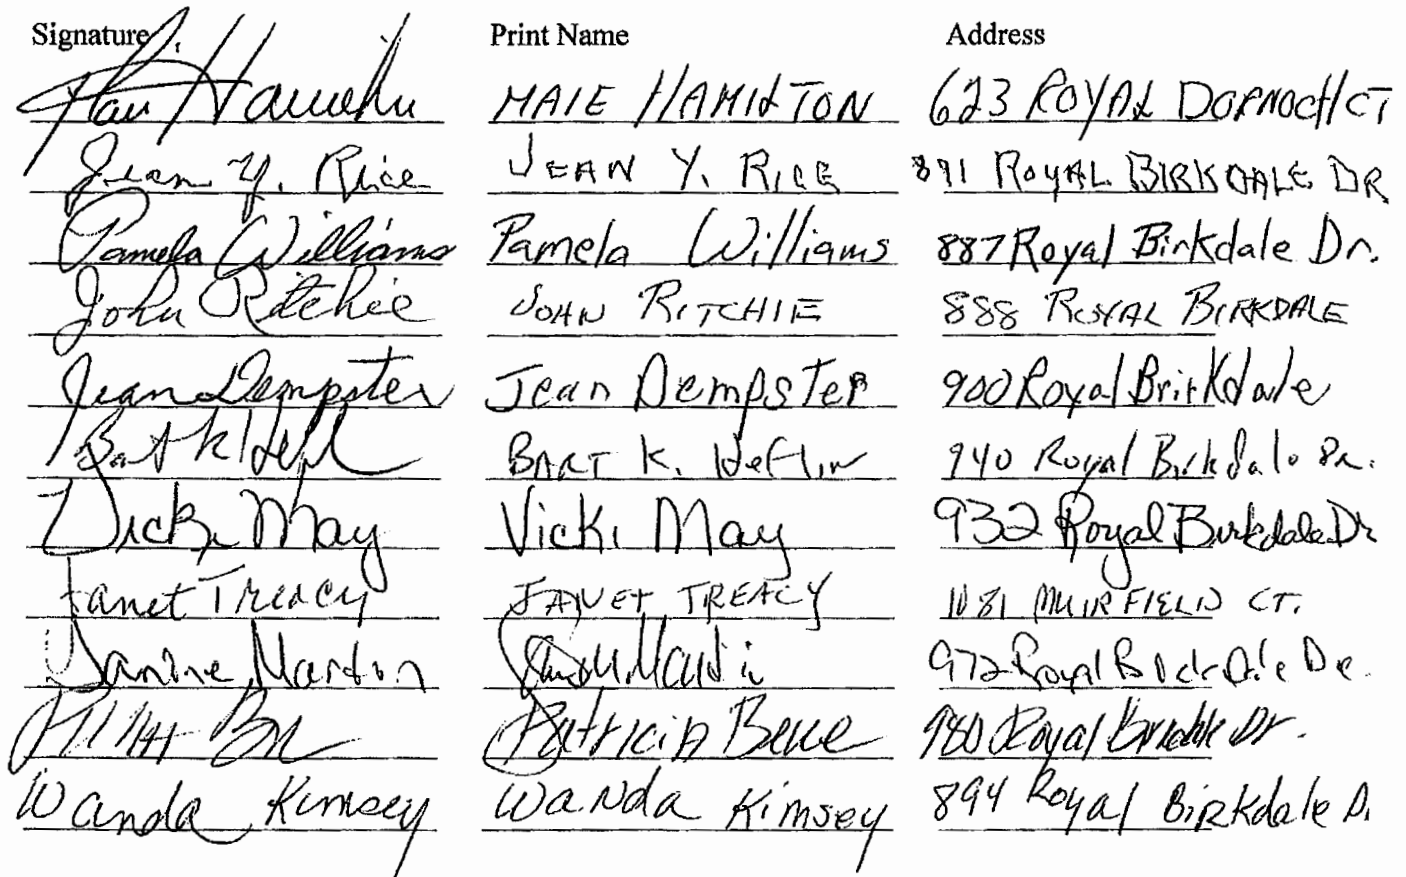 Signature Print Name Address
Hamilton MAIE HAMILTON 623 ROYAL DORNOCH CT
Jean Y. Rice JEAN Y. RICE 891 ROYAL BIRKDALE DR
Pamela Williams Pamela Williams 887 Royal Birkdale Dr.
John Ritchie JOHN RITCHIE 888 ROYAL BIRKDALE
Jean Dempster Jean Dempster 900 Royal BrirKdale
Bart K. Heflin 940 Royal Birkdale Dr.
Vicki May Vicki May 932 Royal Birkdale Dr
Janet Treacy JANET TREACY 1081 MUIRFIELD CT.
Janine Martin 972 Royal Dr.
Patricia Bene 980 Royal Dr.
Wanda Kimsey Wanda Kimsey 894 Royal Birkdale D.